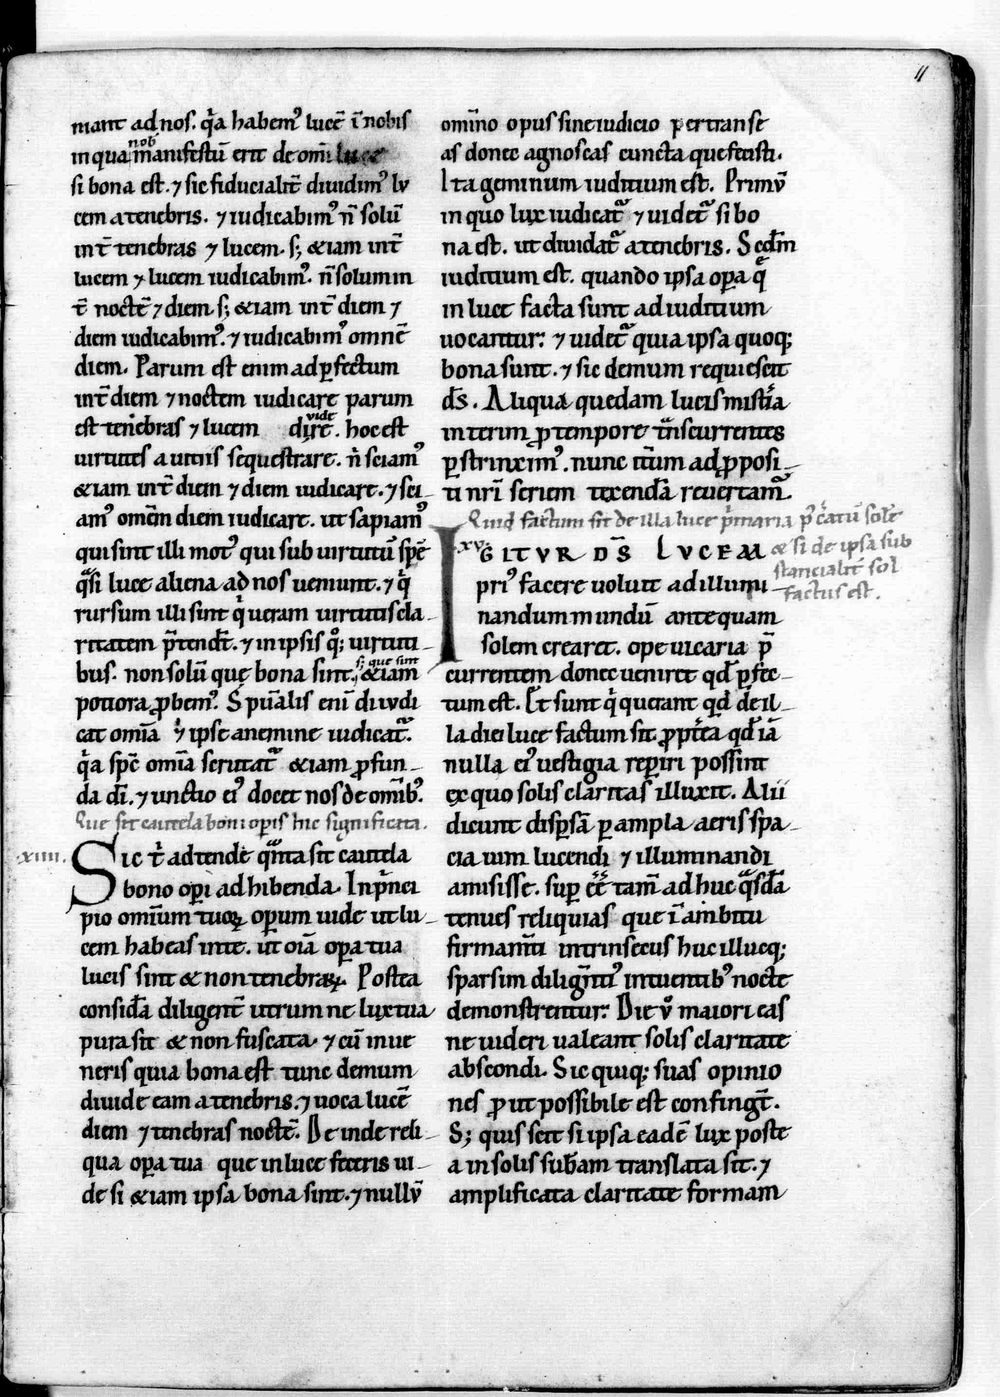 11
niant ad nos. q̇a habem᷒ lucē ī nobis
in qua nob̄ manifestū erit de om̄i luce
si bona est. ⁊ sic fiducialit̄ diuidim᷒ lu
cem a tenebris. ⁊ iudicabim᷒ n̄ solū
int̄ tenebras ⁊ lucem. s; &iam int̄
lucem ⁊ lucem iudicabim᷒. n̄ solum in
t̄ noctē ⁊ diem s; &iam int̄ diem ⁊
diem iudicabim᷒. ⁊ iudicabim᷒ omnē
diem. Parum est enim ad ꝑfectum
int̄ diem ⁊ noctem iudicare parum
est tenebras ⁊ lucem diuidere. hoc est
uirtutes a uitiis sequestrare. n̄ sciam᷒
&iam int̄ diem ⁊ diem iudicare. ⁊ sci-
am᷒ omēm diem iudicare. ut sapiam᷒
qui sint illi mot᷒ qui sub uirtutū spē
q̄si luce aliena ad nos ueniunt. ⁊ q̇
rursum illi sint q̇ ueram uirtutis cla-
ritatem p̄tendt̄. ⁊ in ipsis q; uirtuti-
bus. non solū quę bona sint. s; que sint &iam
potiora ꝓbem᷒. Spūalis enī diiudi
cat om̄ia ⁊ ipse a nemine iudicat᷑.
q̇a spc̄ om̄ia scrutat᷑ &iam ꝓfun-
da dī. ⁊ unctio ei᷒ docet nos de omib᷒.
Que sit cautela boni opis hic significata.
.xiiii.
Sic t̄ adtende q̄nta sit cautela
bono op̄i adhibenda. In p̄nci
pio omīum tuoꝝ operum uide ut lu-
cem habeas in te. ut oīa opa tua
lucis sint & non tenebraꝝ. Postea
considā diligent̄ utrum ne lux tua
pura sit & non fuscata. ⁊ cū inue
neris quia bona est tunc demum
diuide eam a tenebris. ⁊ uoca lucē
diem ⁊ tenebras noctē. Deinde reli-
qua opa tua que in luce feceris ui-
de si &iam ipsa bona sint. ⁊ nullū
om̄ino opus sine iudicio ꝑtranse
as donec agnoscas cuncta que fecisti.
Ita geminum iuditium est. Primū
in quo lux iudicat᷑ ⁊ uidet᷑ si bo
na est. ut diuidat᷑ a tenebris. Secdm̄
iuditium est. quando ipsa opa q̄
in luce facta sunt ad iuditium
uocantur: ⁊ uidet᷑ quia ipsa quoq;
bona sunt. ⁊ sic demum requiescit
ds̄. Aliqua quedam lucis mistia
interim ꝓ tempore tnscurrentes
ꝑstrinxim᷒. nunc itūm ad ꝓposi-
ti nr̄i seriem texendā reuertam᷑.
Quid factum sit de illa luce p̄maria p᷒ c̄atū solē
& si de ipsa sub
stancialit̄ sol
factus est.
.xv.
IGITVR DS̄ LVCEM
pri᷒ facere uoluit ad illumi-
nandum mundū antequam
solem crearet. ope uicaria p̄
currentem donec ueniret qd̄ ꝑfec-
tum est. Et sunt q̇ querant qd̄ de il-
la diei luce factum sit ꝓpt̄ea qd̄ iā
nulla ei᷒ uestigia repiri possint
ex quo solis claritas illuxit. Alii
dicunt dispsā ꝑ ampla aeris spa-
cia uim lucendi ⁊ illuminandi
amisisse. sup eē tam̄ adhuc q̄sdā
tenues reliquias que ī ambitu
firmam̄ti intrinsecus huc illucq;
sparsim diligēti᷒ intuentib᷒ nocte
demonstrentur: Die ū maiori eas
ne uideri ualeant solis claritate
abscondi. Sic quiq; suas opinio
nes ꝓut possibile est confingt̄.
S; quis scit si ipsa eadē lux poste
a in solis subam translata sit. ⁊
amplificata claritate formam